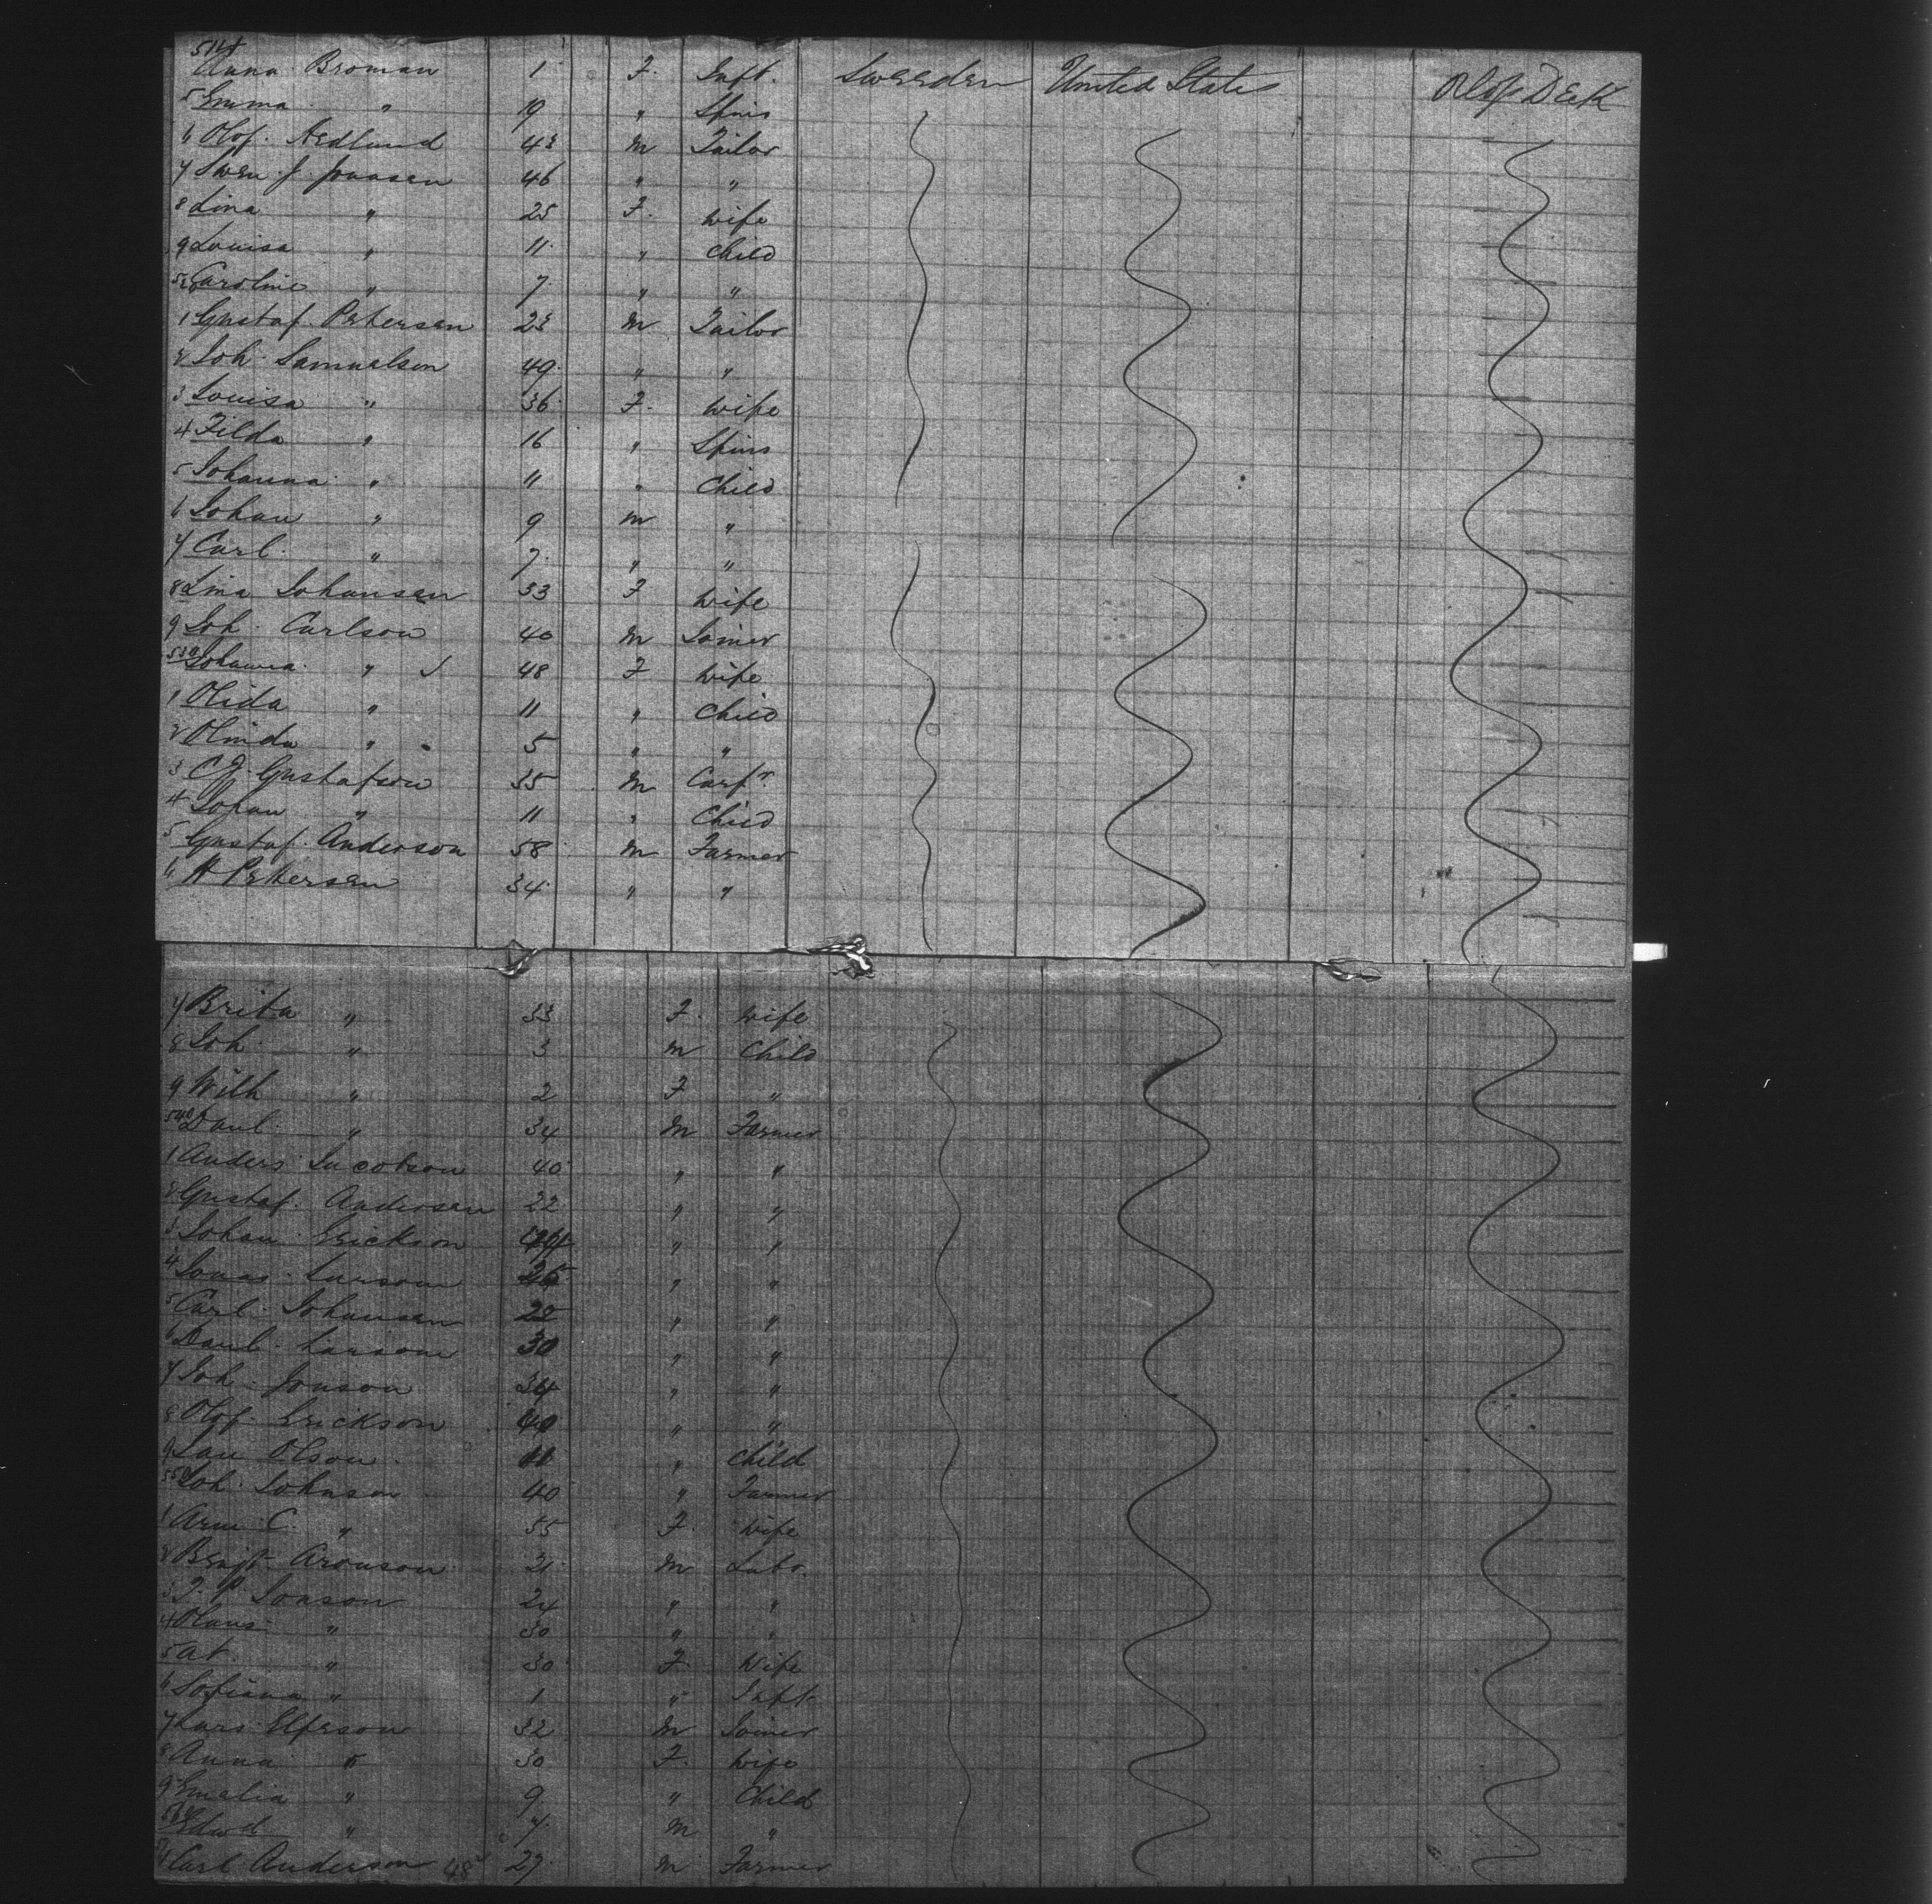 514 Anna Broman 1 F. Inft. Sweeden United States Olof Deck
5 Emma " 19 " Spins
6 Olof. Hedlund 43 m Tailor
7 Swen J. Jonasen 46 " "
8 Lina " 25 F. wife
9 Louisa " 11 " Child
520 Caroline " 7 " "
1 Gustaf. Petersen 23 m Tailor
2 Joh. Samuelson 49 " "
3 Louisa " 36 F. wife
4 Tilda " 16 " Spins
5 Johanna " 11 " Child
6 Johan " 9 m "
7 Carl. " 7 " "
8 Lina Johansen 33 F wife
9 Joh. Carlson 40 m Joiner
530 Johanna " 48 F wife
1 Olida " 11 " Child
2 Olinda " 5 " "
3 C J. Gustafson 35 m Carpr.
4 Johan " 11 " Child
5 Gustaf. Anderson 58 m Farmer
6 H Pettersen 34 " "
7 Brita " 33 F. wife
8 Joh. " 3 m Child
9 Wilh " 2 F "
540 Danl. " 34 m Farmer
1 Anders Jacobson 40 " "
2 Gustaf. Andersen 22 " "
3 Johan Erickson " "
4 Jonas Larson " "
5 Carl. Johansen " "
6 Danl. Larson 30 " "
7 Joh. Jonson 34 " "
8 Olof. Erickson 40 " "
9 Lau Olson 11 " Child
550 Joh. Johnson 40 " Farmer
1 Arm C. " 55 F. wife
2 Benjt. Aronson 21 m Labr.
3 J. P. Jonson 24 " "
4 Olaus " 30 " "
5 at. " 30 F. Wife
6 Sofiana " 1 " Inft.
7 Lars Elfrson 32 m Joiner
8 Anna " 30 F. wife
9 Emelia " 9 " Child
560 Edwd " 7 m "
1 Carl Anderson 48 27 m Farmer